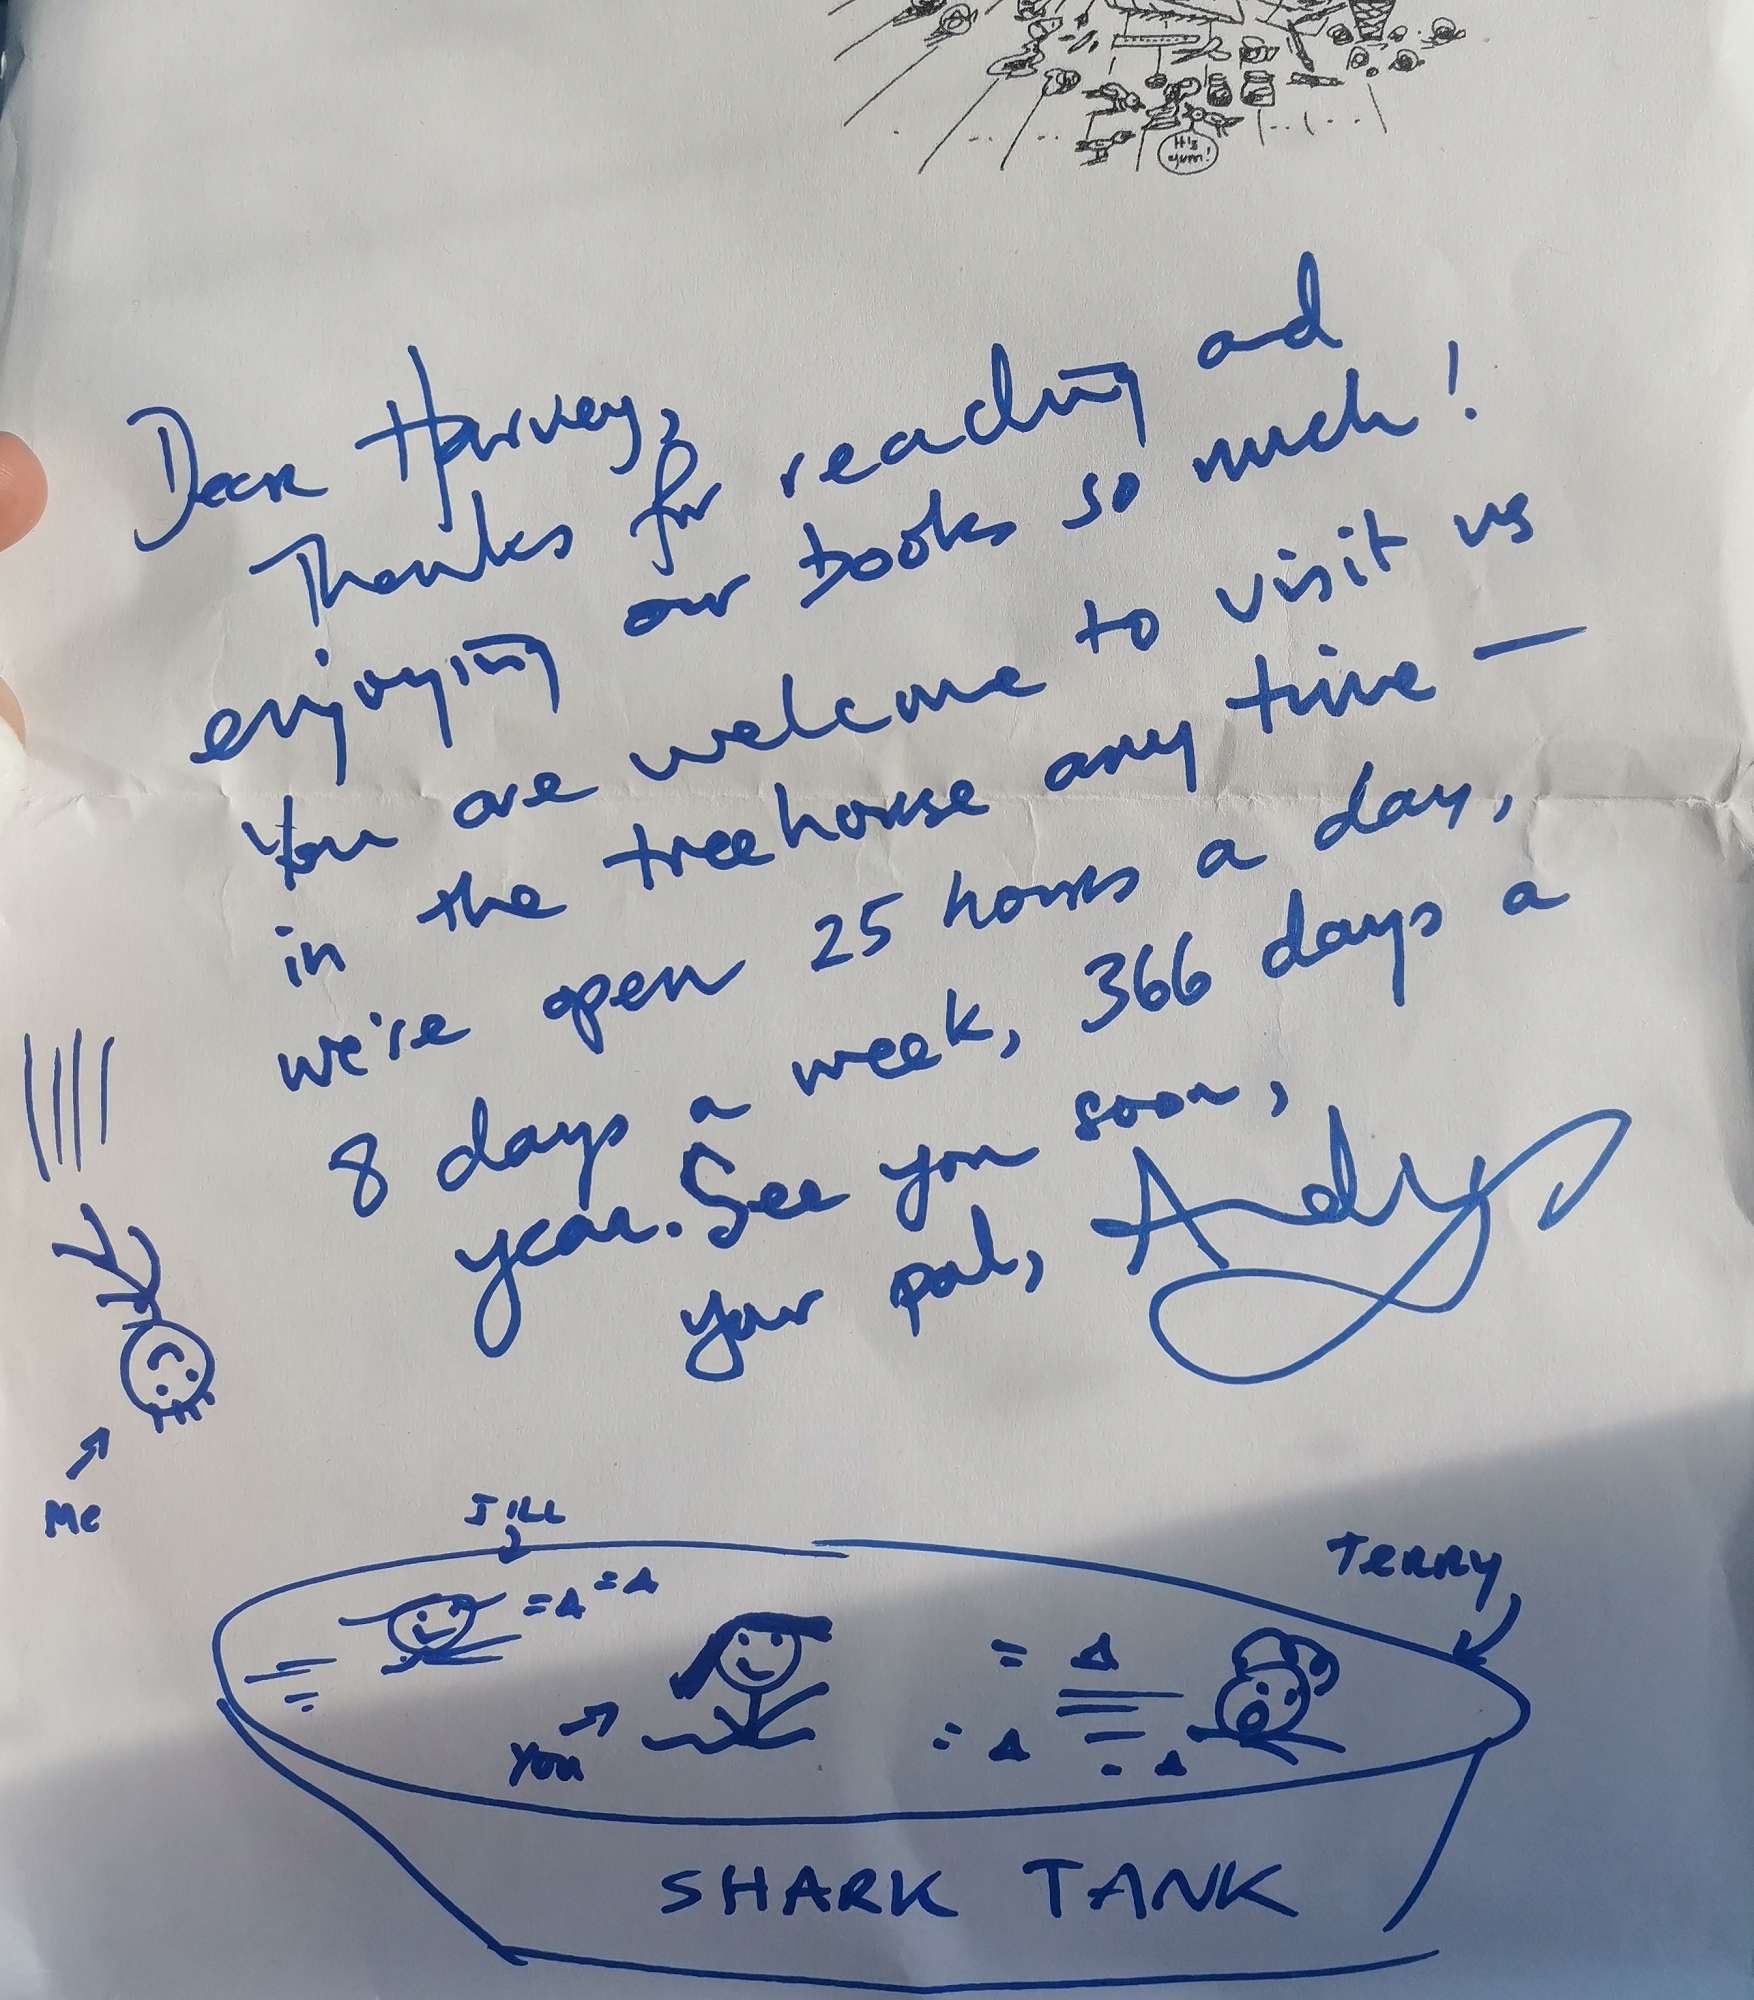 It's
yum!
Dear Harvey,
Thanks for reading and
enjoying our books so much!
You are welcome to visit us
in the treehouse any time —
we're open 25 hours a day,
8 days a week, 366 days a
year. See you soon,
your pal, Andy
Me
JILL
Terry
You
SHARK TANK